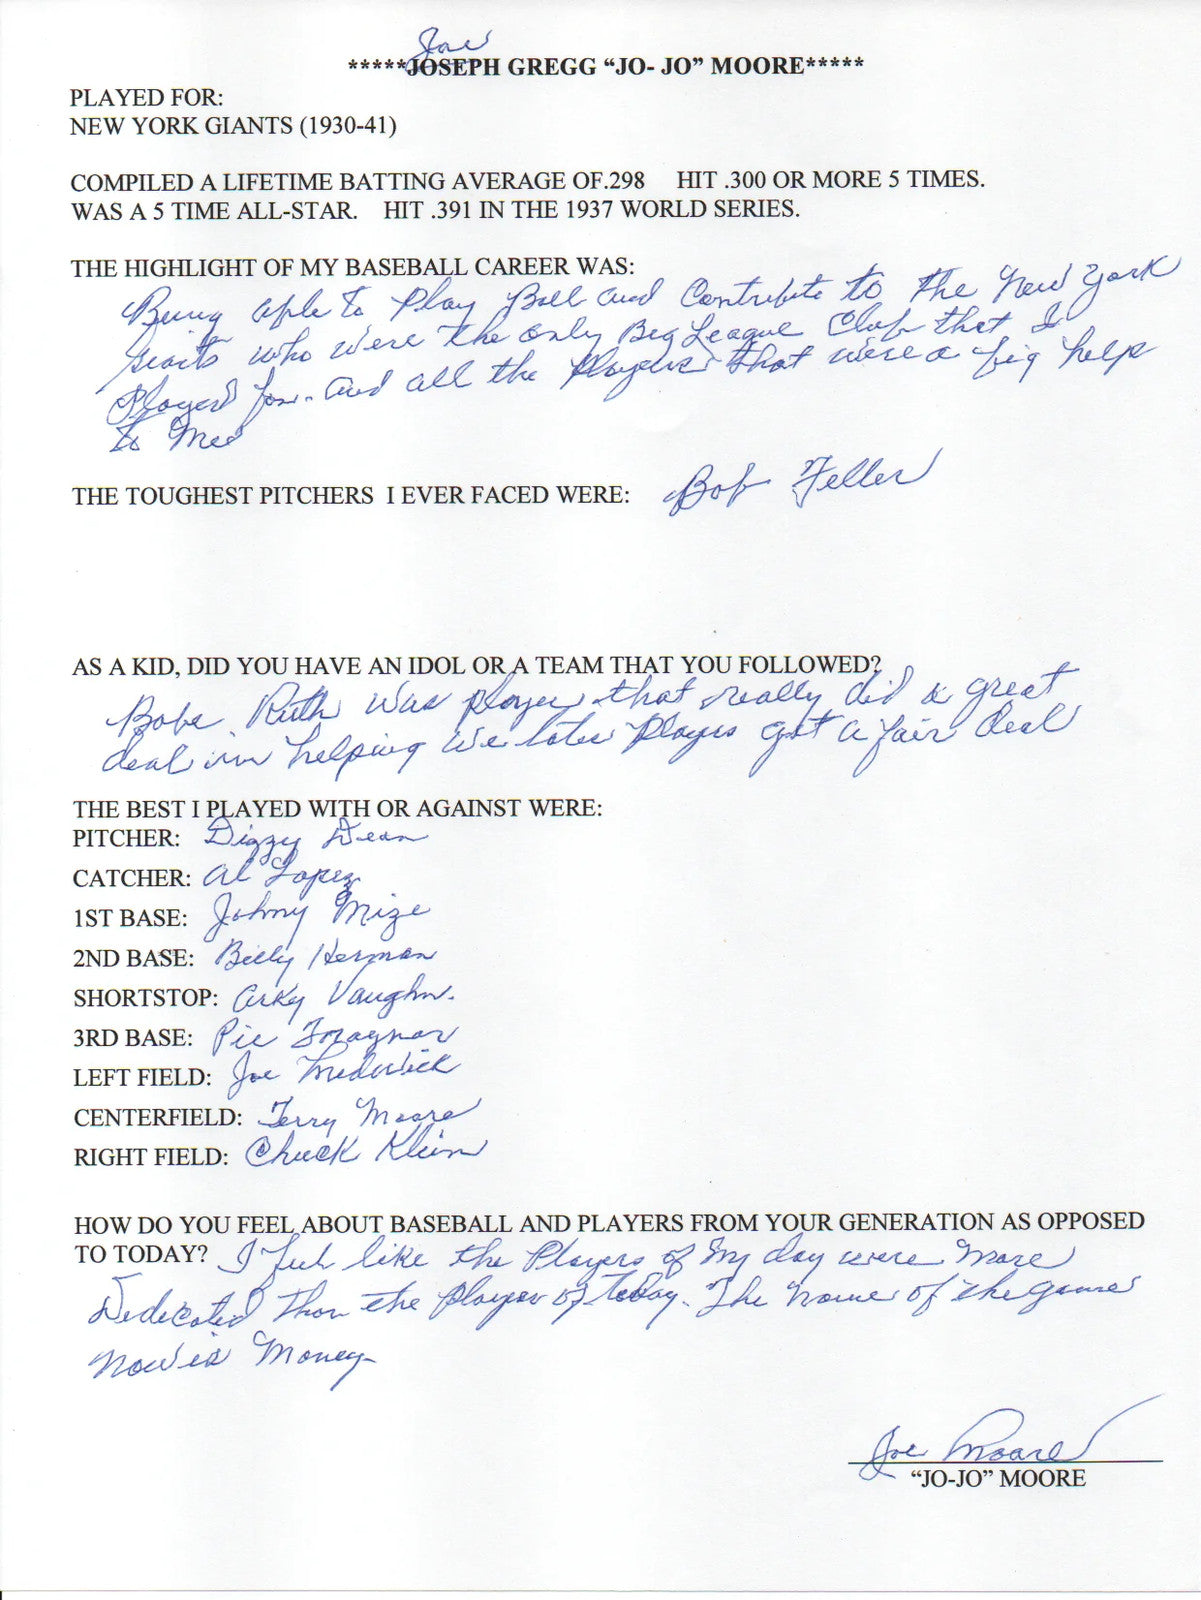 Joe
*****JOSEPH GREGG “JO- JO” MOORE*****
PLAYED FOR:
NEW YORK GIANTS (1930-41)
COMPILED A LIFETIME BATTING AVERAGE OF.298 HIT .300 OR MORE 5 TIMES.
WAS A 5 TIME ALL-STAR. HIT .391 IN THE 1937 WORLD SERIES.
THE HIGHLIGHT OF MY BASEBALL CAREER WAS:
Being able to Play Ball and Contribute to the New York
Giants who were the only Big League Club that I
Played for. and all the Players that were a big help
to Me
THE TOUGHEST PITCHERS I EVER FACED WERE: Bob Feller
AS A KID, DID YOU HAVE AN IDOL OR A TEAM THAT YOU FOLLOWED?
Babe Ruth was player that really did a great
deal in helping we later Players get a fair deal
THE BEST I PLAYED WITH OR AGAINST WERE:
PITCHER: Dizzy Dean
CATCHER: Al Lopez
1ST BASE: Johny Mize
2ND BASE: Billy Herman
SHORTSTOP: Arky Vaughn.
3RD BASE: Pie Traynor
LEFT FIELD: Joe Medwick
CENTERFIELD: Terry Moore
RIGHT FIELD: Chuck Klein
HOW DO YOU FEEL ABOUT BASEBALL AND PLAYERS FROM YOUR GENERATION AS OPPOSED
TO TODAY? I feel like the Players of My day were More
Dedicated than the Player of today. The Name of the game
Now is Money
Joe Moore
“JO-JO” MOORE